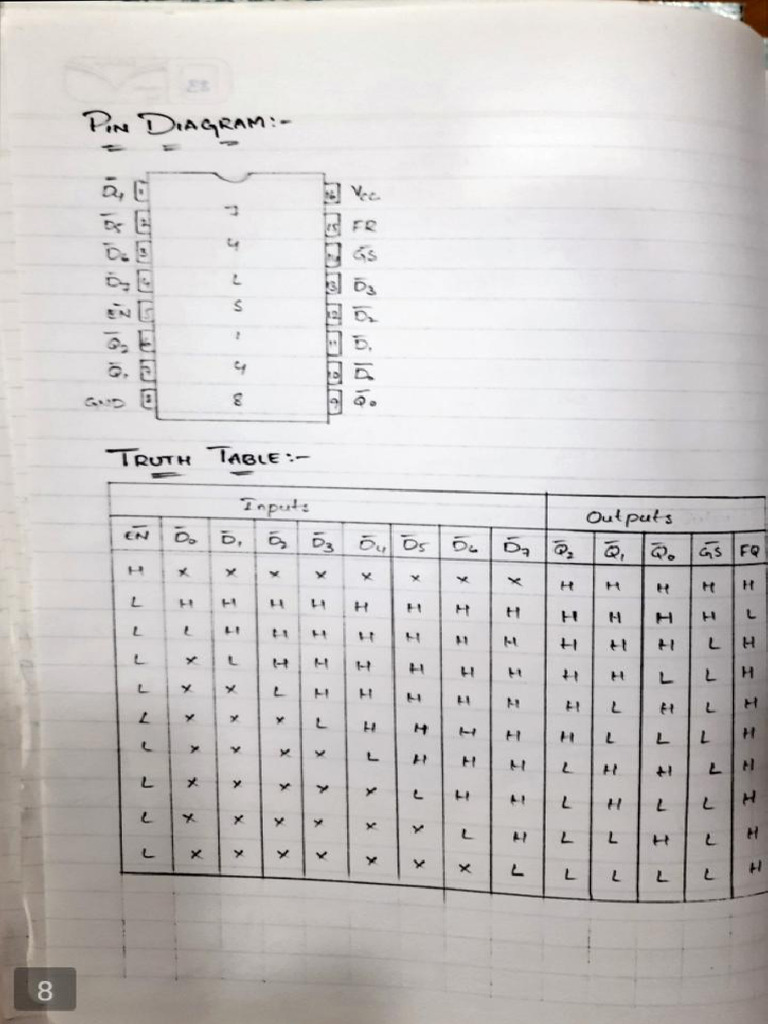 PIN DIAGRAM:-
D̅4 J VCC
D̅5 FR
D̅6 4 G̅S̅
D̅7 L D̅3
E̅N̅ S D̅2
Q̅2 1 D̅1
Q̅1 4 D̅0
GND 8 Q̅0
TRUTH TABLE:-
Inputs Outputs
E̅N̅ D̅0 D̅1 D̅2 D̅3 D̅4 D̅5 D̅6 D̅7 Q̅2 Q̅1 Q̅0 G̅S̅ FQ
H X X X X X X X X H H H H H
L H H H H H H H H H H H H L
L L H H H H H H H H H H L H
L X L H H H H H H H H L L H
L X X L H H H H H H L H L H
L X X X L H H H H H L L L H
L X X X X L H H H L H H L H
L X X X X X L H H L H L L H
L X X X X X X L H L L H L H
L X X X X X X X L L L L L H
8